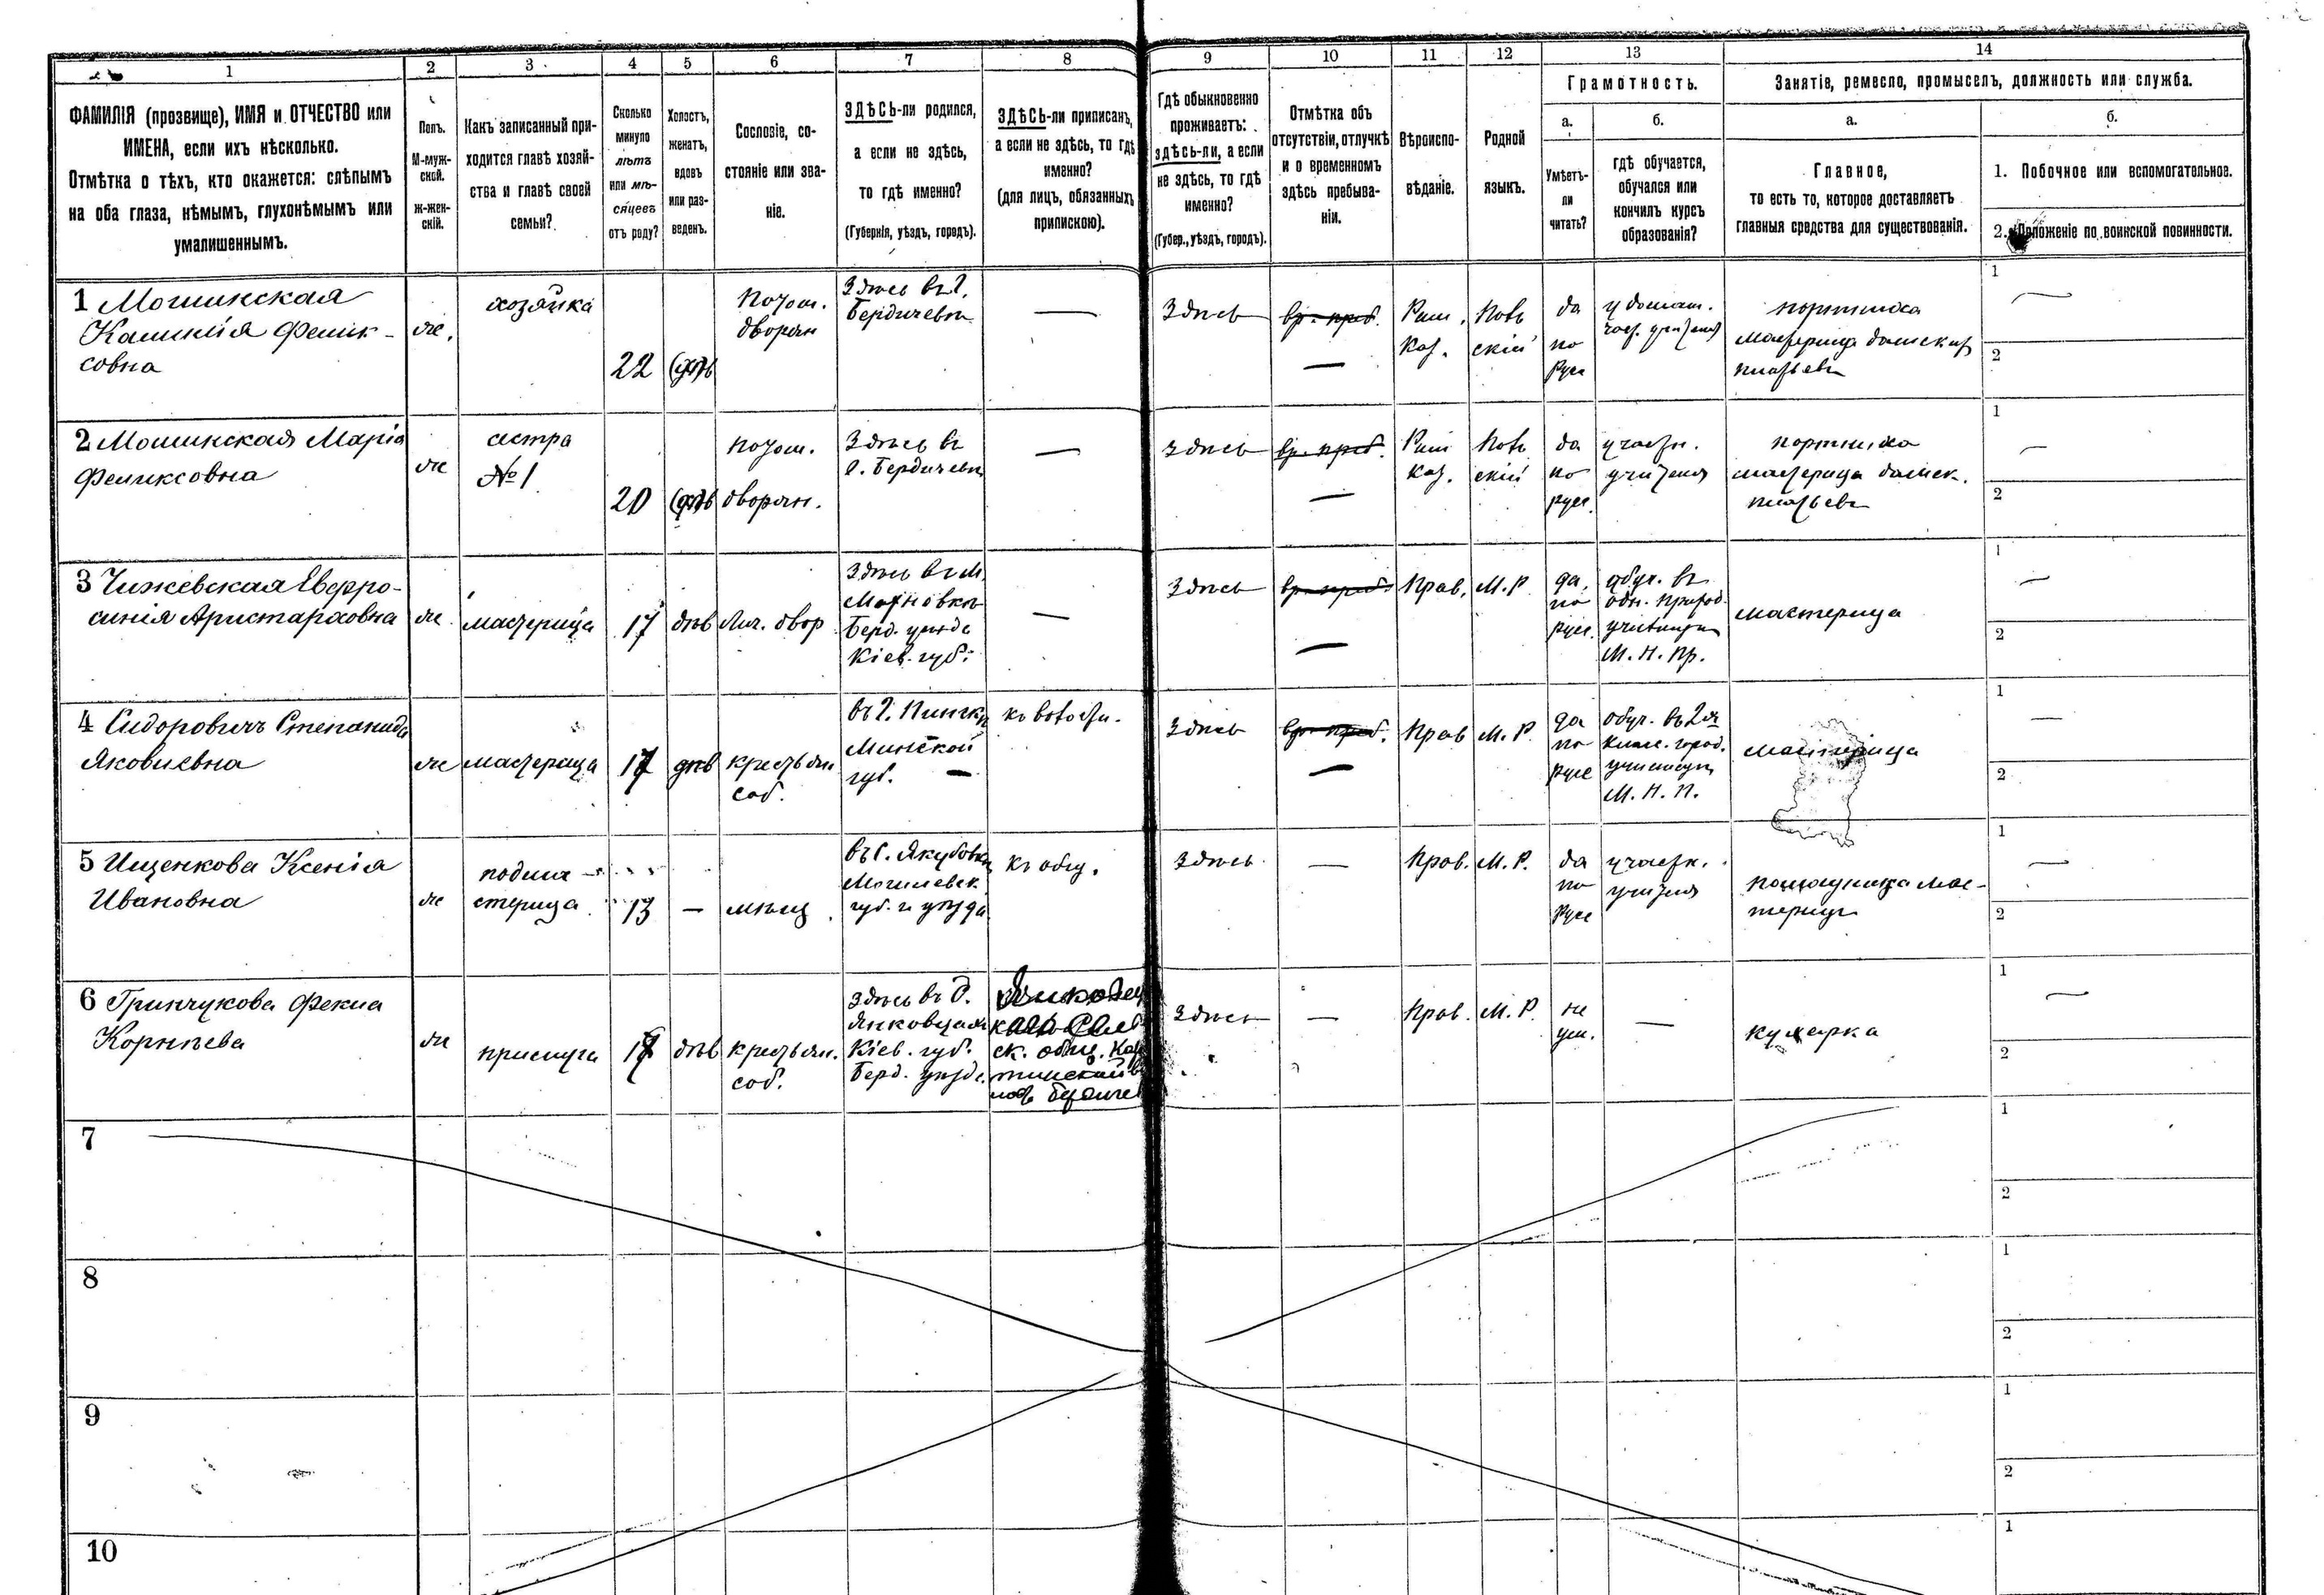 1 2 3 4 5 6 7 8 9 10 11 12 13 14
ФАМИЛІЯ (прозвище), ИМЯ и ОТЧЕСТВО или
ИМЕНА, если ихъ нѣсколько.
Отмѣтка о тѣхъ, кто окажется: слѣпымъ
на оба глаза, нѣмымъ, глухонѣмымъ или
умалишеннымъ.
Полъ.
М-муж-
ской.
Ж-жен-
скій.
Какъ записанный при-
ходится главѣ хозяй-
ства и главѣ своей
семьи?
Сколько
минуло
лѣтъ
или мѣ-
сяцевъ
отъ роду?
Холостъ,
женатъ,
вдовъ
или раз-
веденъ.
Сословіе, со-
стояніе или зва-
ніе.
ЗДѢСЬ-ли родился,
а если не здѣсь,
то гдѣ именно?
(Губернія, уѣздъ, городъ).
ЗДѢСЬ-ли приписанъ,
а если не здѣсь, то гдѣ
именно?
(для лицъ, обязанныхъ
припискою).
Гдѣ обыкновенно
проживаетъ:
здѣсь-ли, а если
не здѣсь, то гдѣ
именно?
(Губер., уѣздъ, городъ).
Отмѣтка объ
отсутствіи, отлучкѣ
и о временномъ
здѣсь пребыва-
ніи.
Вѣроиспо-
вѣданіе.
Родной
языкъ.
Грамотность.
а.
Умѣетъ-
ли
читать?
б.
гдѣ обучается,
обучался или
кончилъ курсъ
образованія?
Занятіе, ремесло, промыселъ, должность или служба.
а.
Главное,
то есть то, которое доставляетъ
главныя средства для существованія.
б.
1. Побочное или вспомогательное.
2. Положеніе по воинской повинности.
1 Мошинская
Камилія Фелик-
совна
ж.
хозяйка
22
Потом.
дворян
Здѣсь въ г.
Бердичевѣ
—
Здѣсь
вр. преб.
—
Рим.
Кат.
Поль
скій
да
по
Русс
у домаш.
част. учителя
портниха
мастерица дамскихъ
платьевъ
1
2
2 Мошинская Марія
Феликсовна
ж
сестра
№ 1
20
Потом.
дворян.
Здѣсь въ
г. Бердичевѣ
—
Здѣсь
вр. преб.
—
Рим
Кат.
Поль
скій
да
по
русс.
у частн.
учителя
портниха
мастерица дамск.
платьевъ
1
2
3 Чижевская Евфро-
синія Аристарховна
ж
мастерица
17
дѣв
Лич. двор
Здѣсь въ м.
Берд. уѣзда
Кіев. губ.
—
Здѣсь
вр. преб.
—
Прав.
М. Р.
да
по
русс.
обуч. въ
училищѣ
М. Н. Пр.
мастерица
1
2
4 Сидоровичъ Степанида
Яковлевна
ж
мастерица
17
дѣв
крестьян
соб.
въ г. Пинскѣ
Минской
губ. —
къ волости.
Здѣсь
вр. преб.
—
Прав
М. Р.
да
по
русс
обуч. въ 2х
класс. город.
училищѣ
М. Н. П.
мастерица
1
2
5 Ищенкова Ксенія
Ивановна
ж
подма-
стерица
13
—
мѣщ.
въ с. Якубовкѣ
Могилевск.
губ. и уѣзда
къ общ.
Здѣсь
—
Прав.
М. Р.
да
по
Русс
у частн.
учителя
помощница мас-
терицы
1
2
6 Гринчукова Фекла
Корнѣева
ж
прислуга
дѣв
крестьян.
соб.
Здѣсь въ д.
Янковцахъ
Кіев. губ.
Берд. уѣзд.
ск. общ.
Здѣсь
—
Прав.
М. Р.
не
ум.
—
кухарка
1
2
7
1
2
8
1
2
9
1
2
10
1